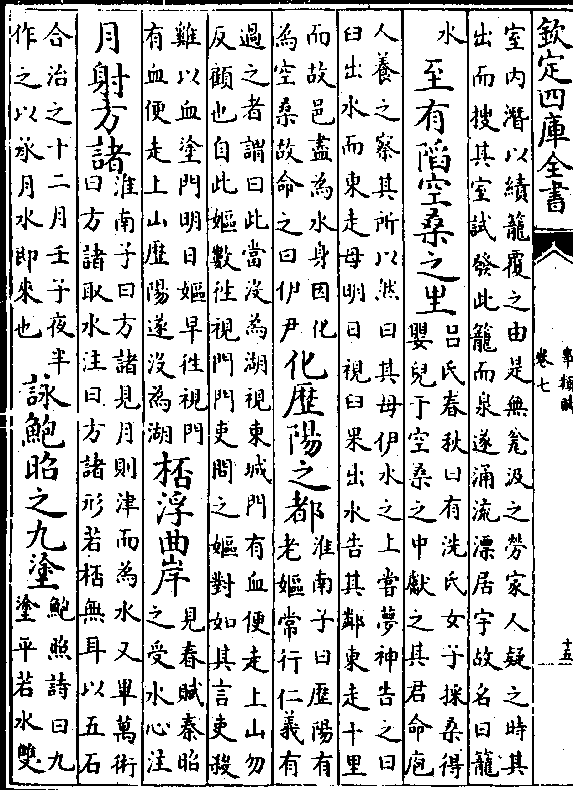 欽定四庫全書
事類賦
卷七
十五
室内潛以績籠覆之由是無瓫汲之勞家人疑之時其
出而搜其室試發此籠而泉遂涌流漂居宇故名曰籠
水
至有䧟空桑之里
吕氏春秋曰有洗氏女子採桑得
嬰兒于空桑之中獻之其君命庖
人養之察其所以然曰其母伊水之上嘗夢神告之曰
臼出水而東走母明日視臼果出水告其鄰東走十里
而故邑盡為水身因化
為空桑故命之曰伊尹
化歴陽之都
淮南子曰歴陽有
老嫗常行仁義有
過之者謂曰此當沒為湖視東城門有血便走上山勿
反顧也自此嫗數徃視門門吏問之嫗對如其言吏殺
雞以血塗門明日嫗早徃視門
有血便走上山歴陽遂沒為湖
桮浮曲岸
見春賦秦昭
之受水心注
月射方諸
淮南子曰方諸見月則津而為水又畢萬術
曰方諸取水注曰方諸形若桮無耳以五石
合治之十二月壬子夜半
作之以氶月水即來也
詠鮑昭之九塗
鮑照詩曰九
塗平若水雙